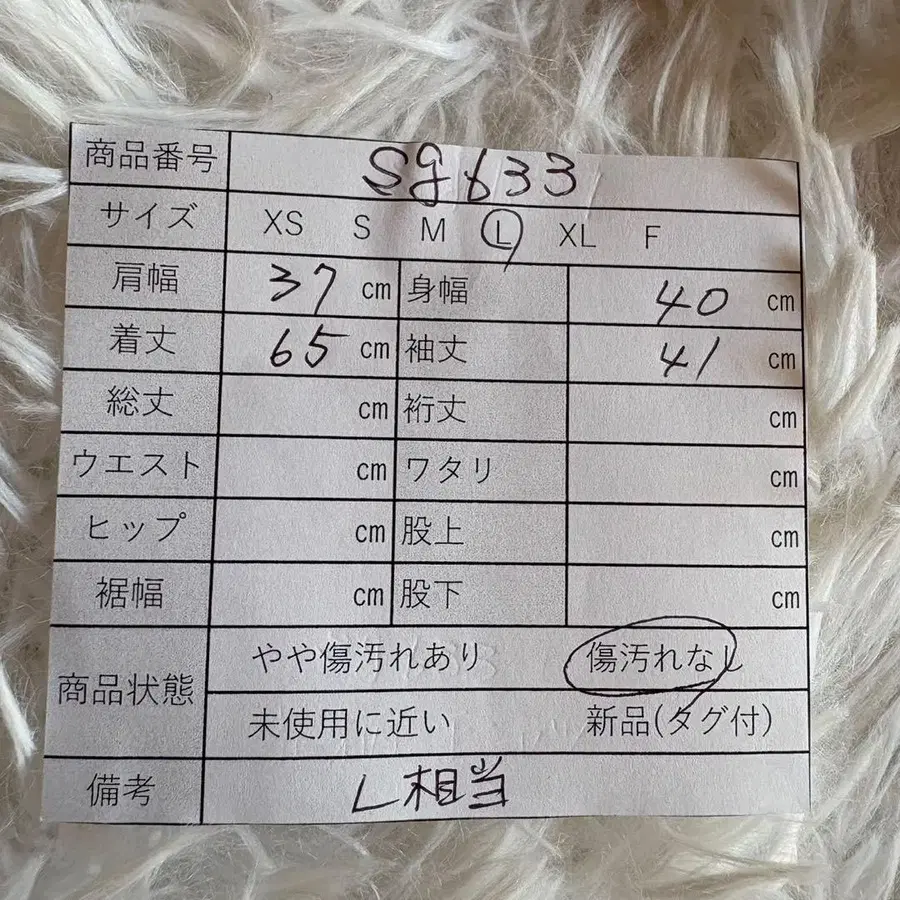 商品番号 sg633
サイズ XS S M L XL F
肩幅 37 cm 身幅 40 cm
着丈 65 cm 袖丈 41 cm
総丈 cm 裄丈 cm
ウエスト cm ワタリ cm
ヒップ cm 股上 cm
裾幅 cm 股下 cm
商品状態 やや傷汚れあり 傷汚れなし
未使用に近い 新品(タグ付)
備考 L相当